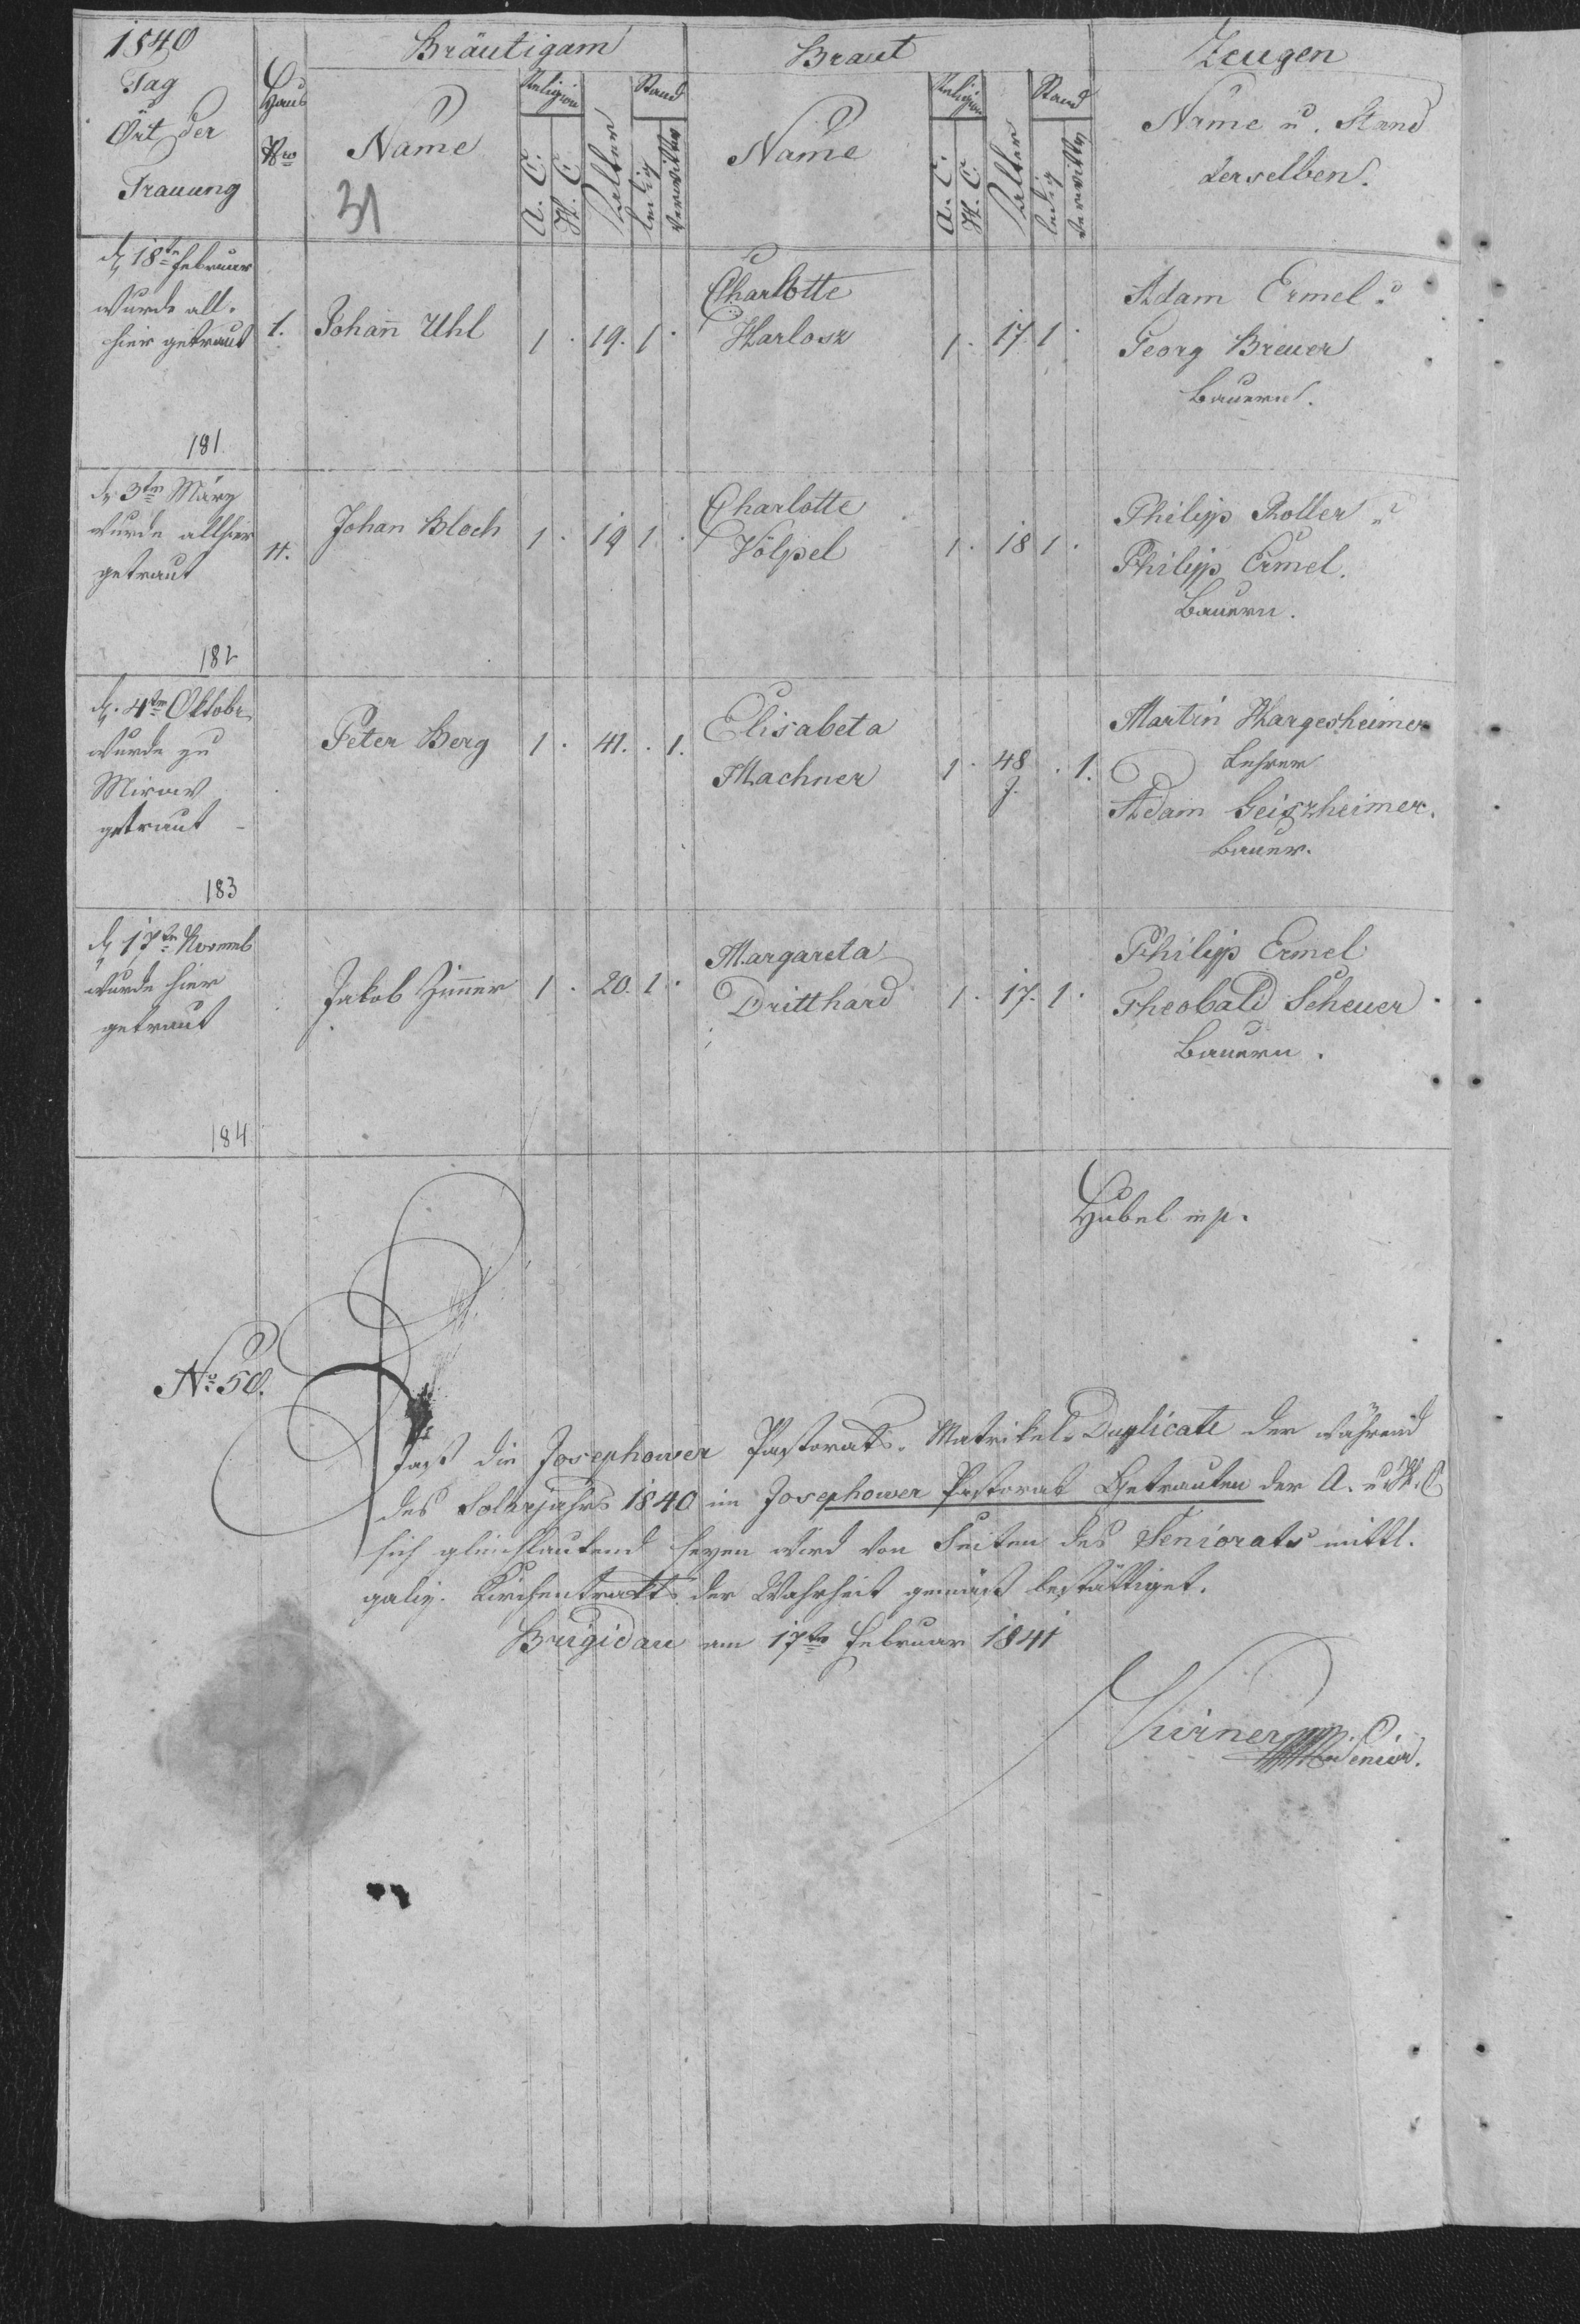 1840
Tag
Ort der
Trauung
Haus
Nro
Bräutigam
Name
31
Religion
A. C.
H. C.
Alter
Stand
ledig
verwittw
Braut
Name
Religion
A. C.
H. C.
Alter
Stand
ledig
verwittw
Zeugen
Name u. Stand
derselben.
d 18te Februar
wurde all-
hier getraut
181
1.
Johañ Uhl
1 . 19. 1 .
Charlotte
Harlosz
1. 17. 1 .
Adam Ermel u
Georg Breuer
Bauern.
d 3ten März
wurde allhier
getraut
182
11.
Johan Bloch
1 . 19 1 .
Charlotte
Völpel
1. 18 1 .
Philipp Roller u
Philipp Ermel.
Bauern.
d. 4ten Oktobr
wurde zu
Mirow
getraut
183
Peter Berg
1 . 41. . 1.
Elisabeta
Machner
1 . 48 . 1.
J.
Martin Hargesheimer
Lehrer
Adam Geiszheimer.
Bauer.
d 17te Novemb
wurde hier
getraut
184
Jakob Zim̃er
1 . 20. 1 .
Margareta
Dritthard
1. 17. 1 .
Philipp Ermel
Theobald Scheuer
Bauern.
Hübel mp.
No 50.
Daß die Josephower Pastorats-Matrikel-Duplicate der während
des Solarjahrs 1840 im Josephower Pastorat Getrauten der A. u H. C
sich gleichlautend seyen wird von Seiten des Seniorats mittl.
galiz. Kirchentrakts der Wahrheit gemäß bestättiget.
Brigidau am 17te Februar 1841
Senior.